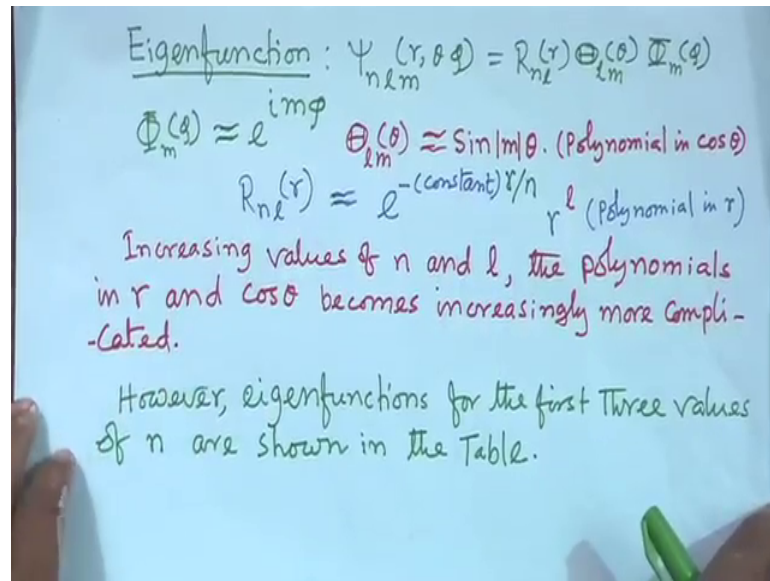 Eigenfunction : Ψnlm (r, θ φ) = Rnl(r) Θlm(θ) Φm(φ)
Φm(φ) ≈ e^imφ Θlm(θ) ≈ Sin|m|θ. (Polynomial in cosθ)
Rnl(r) ≈ e^-(constant)r/n r^l (Polynomial in r)
Increasing values of n and l, the polynomials
in r and cosθ becomes increasingly more compli-
-cated.
However, eigenfunctions for the first Three values
of n are shown in the Table.